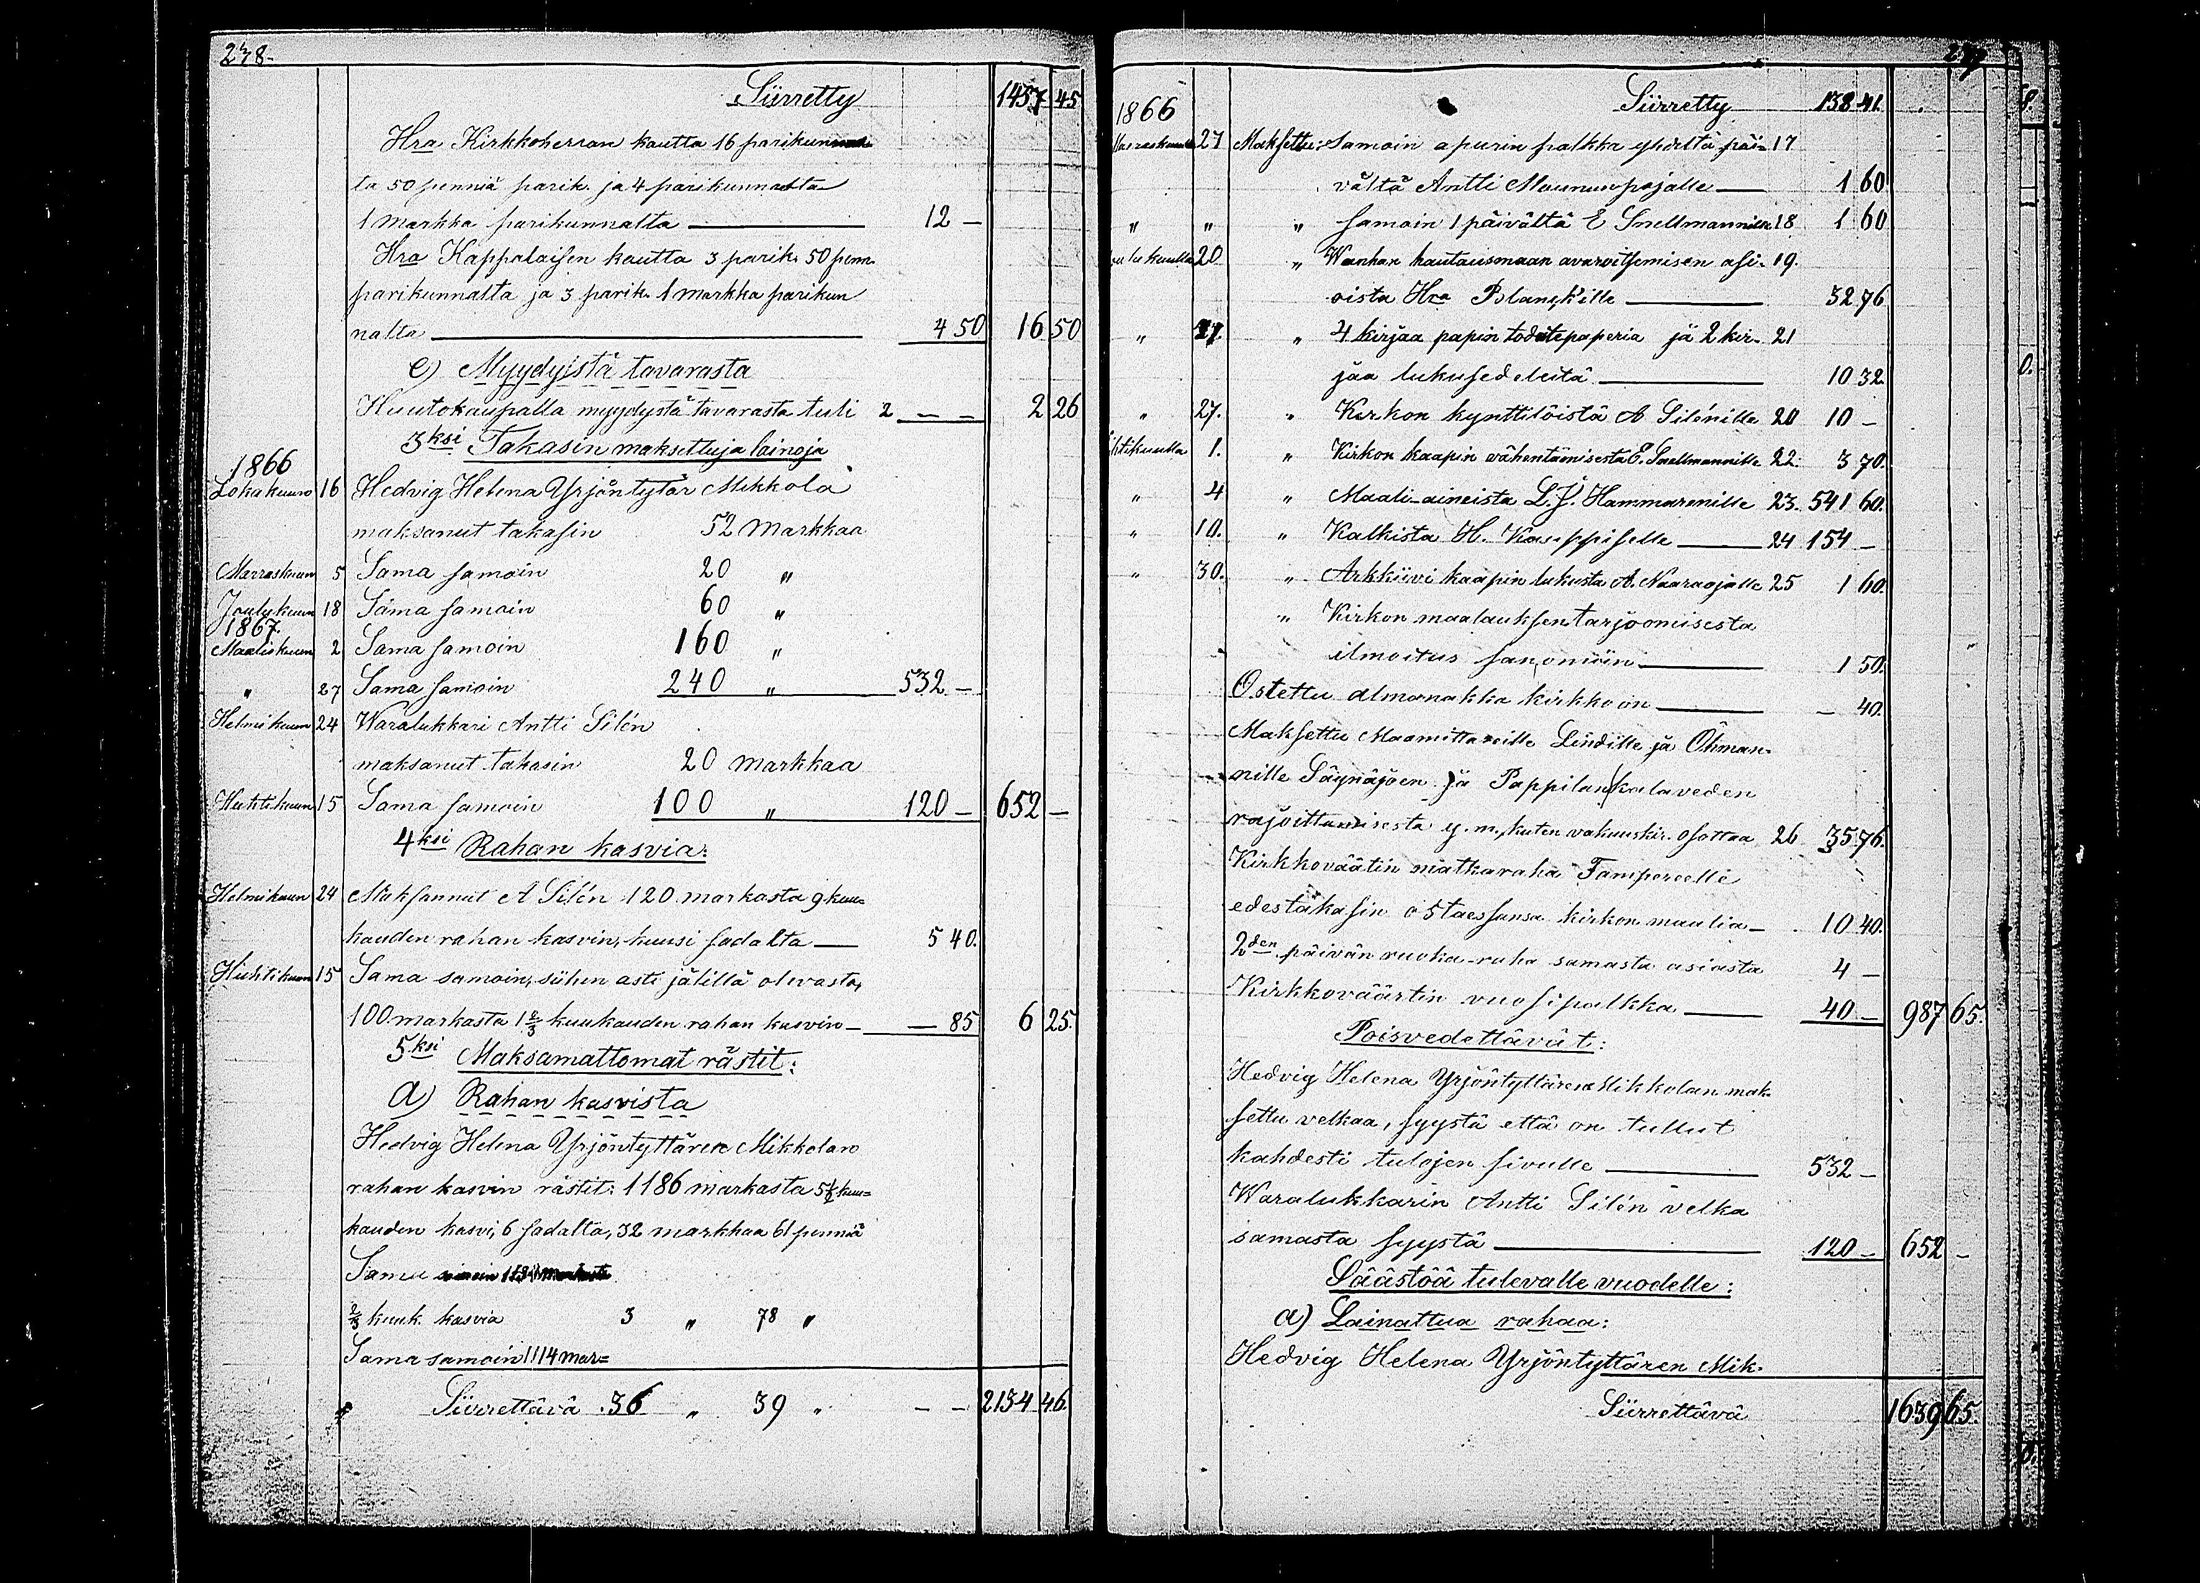 238.
Siirretty 1457 45
Hra Kirkkoherran kautta 16 parikunnal-
ta 50 penniä parik. ja 4 parikunnalta
1 markka parikunnalta 12 —
Hra Kappalaisen kautta 3 parik. 50 penn.
parikunnalta ja 3 parik. 1 markka parikun
nalta 4 50 16 50
e) Myydyistä tavarasta
Huutokaupalla myydystä tavarasta tuli 2 — — 2 26
3ksi Takasin maksettuja lainoja
1866
Lokakuun 16 Hedvig Helena Yrjöntytär Mikkola
maksanut takasin 52 markkaa
Marraskuun 5 Sama samoin 20 "
Joulukuun 18 Sama samoin 60 "
1867.
Maaliskuun 2 Sama samoin 160 "
" 27 Sama samoin 240 " 532 —
Helmikuun 24 Waralukkari Antti Silén
maksanut takasin 20 markkaa
Huhtikuun 15 Sama samoin 100 " 120 — 652 —
4ksi Rahan kasvia:
Helmikuun 24 Maksannut A Silén 120 markasta 9 kuu-
kauden rahan kasvin, kuusi sadalta — 5 40.
Huhtikuun 15 Sama samoin, siihen asti jälillä olevasta,
100 markasta 1 2/3 kuukauden rahan kasvin — — 85 6 25.
5ksi Maksamattomat rästit:
a) Rahan kasvista
Hedvig Helena Yrjöntyttären Mikkolan
rahan kasvin rästit: 1186 markasta 5½ kuu-
kauden kasvi, 6 sadalta, 32 markkaa 61 penniä
Sama
2/3 kuuk. kasvia 3 " 78 "
Sama samoin 1114 mar=
Siirrettävä 36 " 39 " — — 2134 46.
1866 Siirretty 138 41.
Marraskuun 27 Maksettu: Samoin apurin palkka yhdeltä päi- 17
vältä Antti Maununpajalle — 1 60
" " " samoin 1 päivältä E Snellmannille 18 1 60
lukuulla 20 " Wanhan hautausmaan avarvitsemisen asi- 19.
oista Hra Polangkille — 32 76
" " 4 kirjaa papin todistepaperia jä 2 kir- 21
jaa lukusedeleitä — 10 32.
" 27. " Kirkon kynttilöistä A Silénille 20 10 —
htikuulla 1. " Kirkon kaapin vähentämisestä E. Snellmannille 22. 3 70.
" 4 " Maali-aineista L. J. Hammarenille 23. 541 60.
" 10. " Kalkista H. Kauppiselle — 24 154 —
" 30. " Arkkiivi kaapin lukusta A. Naaraojalle 25 1 60.
" Kirkon maalauksen tarjoomisesta
ilmoitus sanomiin — 1 50.
Ostettu almanakka kirkkoon — — 40.
Maksettu Maamittareille Lindille ja Öhman-
nille Säynäjoen jä Pappilan kalaveden
rajoittamisesta y. m., kuten vakuuskir. osottaa 26 35 76.
Kirkkoväätin matkaraha Tampereelle
edestakasin ostaessansa kirkon maalia — 10 40.
2den päivän ruoka-raha samasta asiasta 4 —
Kirkkoväärtin vuosipalkka — 40 — 987 65.
Poisvedettävät:
Hedvig Helena Yrjöntyttären Mikkolan mak-
settu velkaa, syystä että on tullut
kahdesti tulojen sivulle — 532 —
Waralukkarin Antti Silén velka
samasta syystä — 120 — 652 —
Säästöä tulevalle vuodelle:
a) Lainattua rahaa:
Hedvig Helena Yrjöntyttären Mik-
Siirrettävä 1639 65.